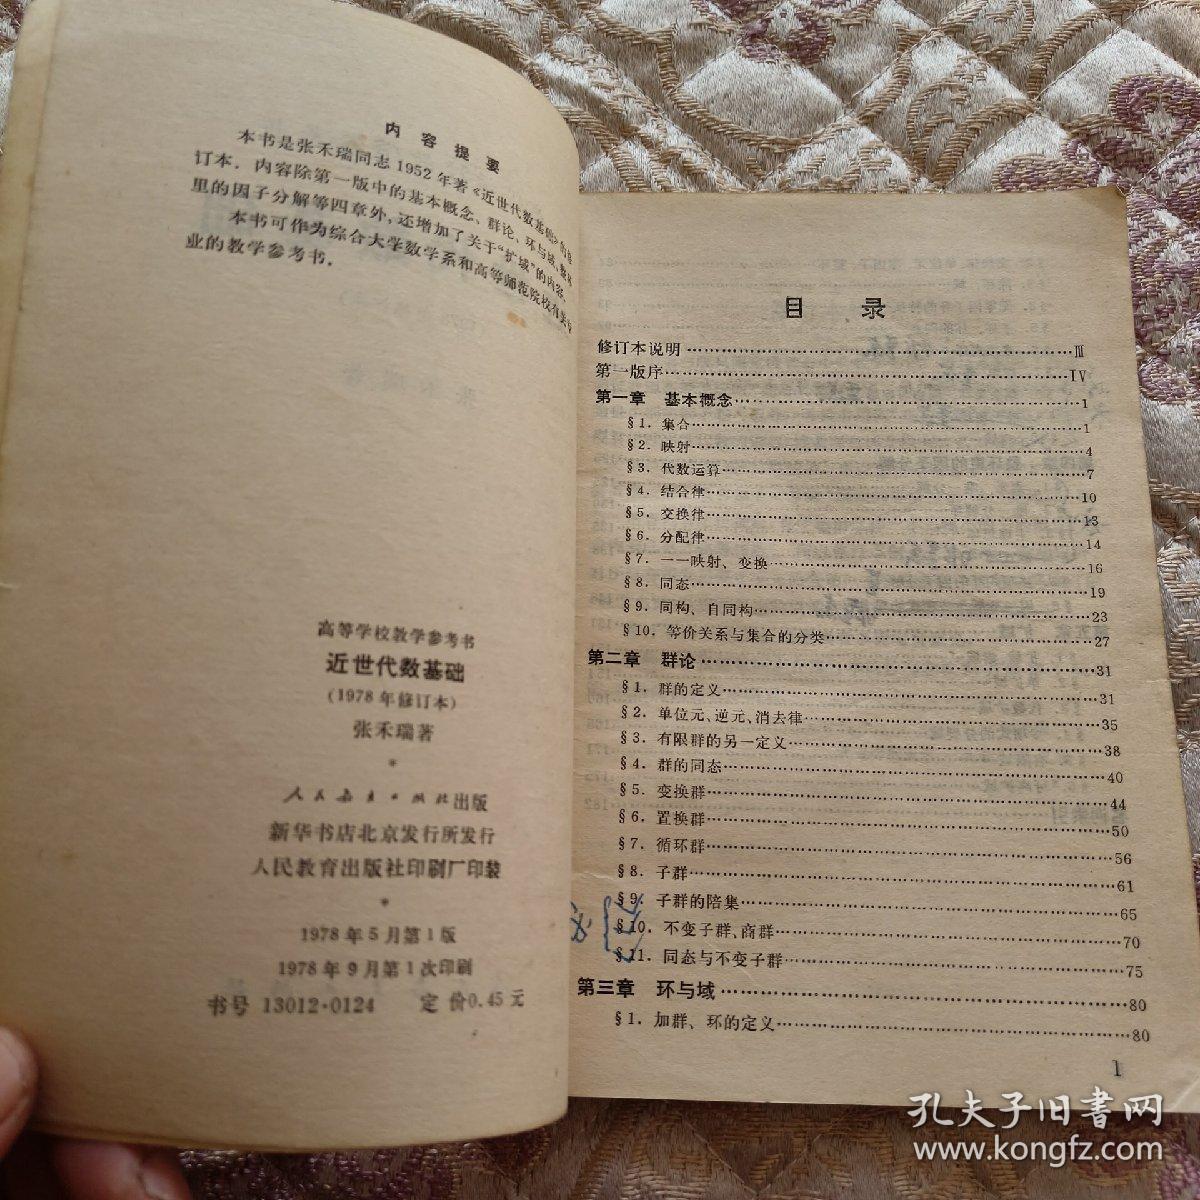 内容提要
本书是张禾瑞同志1952年著《近世代数基础》的修
订本．内容除第一版中的基本概念、群论、环与域、整环
里的因子分解等四章外，还增加了关于“扩域”的内容．
本书可作为综合大学数学系和高等师范院校有关专
业的教学参考书．
高等学校教学参考书
近世代数基础
(1978年修订本)
张禾瑞著
*
人民教育出版社出版
新华书店北京发行所发行
人民教育出版社印刷厂印装
*
1978年5月第1版
1978年9月第1次印刷
书号 13012·0124 定价0.45元
目录
修订本说明……Ⅲ
第一版序……IV
第一章 基本概念……1
§1．集合……1
§2．映射……4
§3．代数运算……7
§4．结合律……10
§5．交换律……13
§6．分配律……14
§7．一一映射、变换……16
§8．同态……19
§9．同构、自同构……23
§10．等价关系与集合的分类……27
第二章 群论……31
§1．群的定义……31
§2．单位元、逆元、消去律……35
§3．有限群的另一定义……38
§4．群的同态……40
§5．变换群……44
§6．置换群……50
§7．循环群……56
§8．子群……61
§9．子群的陪集……65
§10．不变子群、商群……70
§11．同态与不变子群……75
第三章 环与域……80
§1．加群、环的定义……80
1
孔夫子旧书网
www.kongfz.com